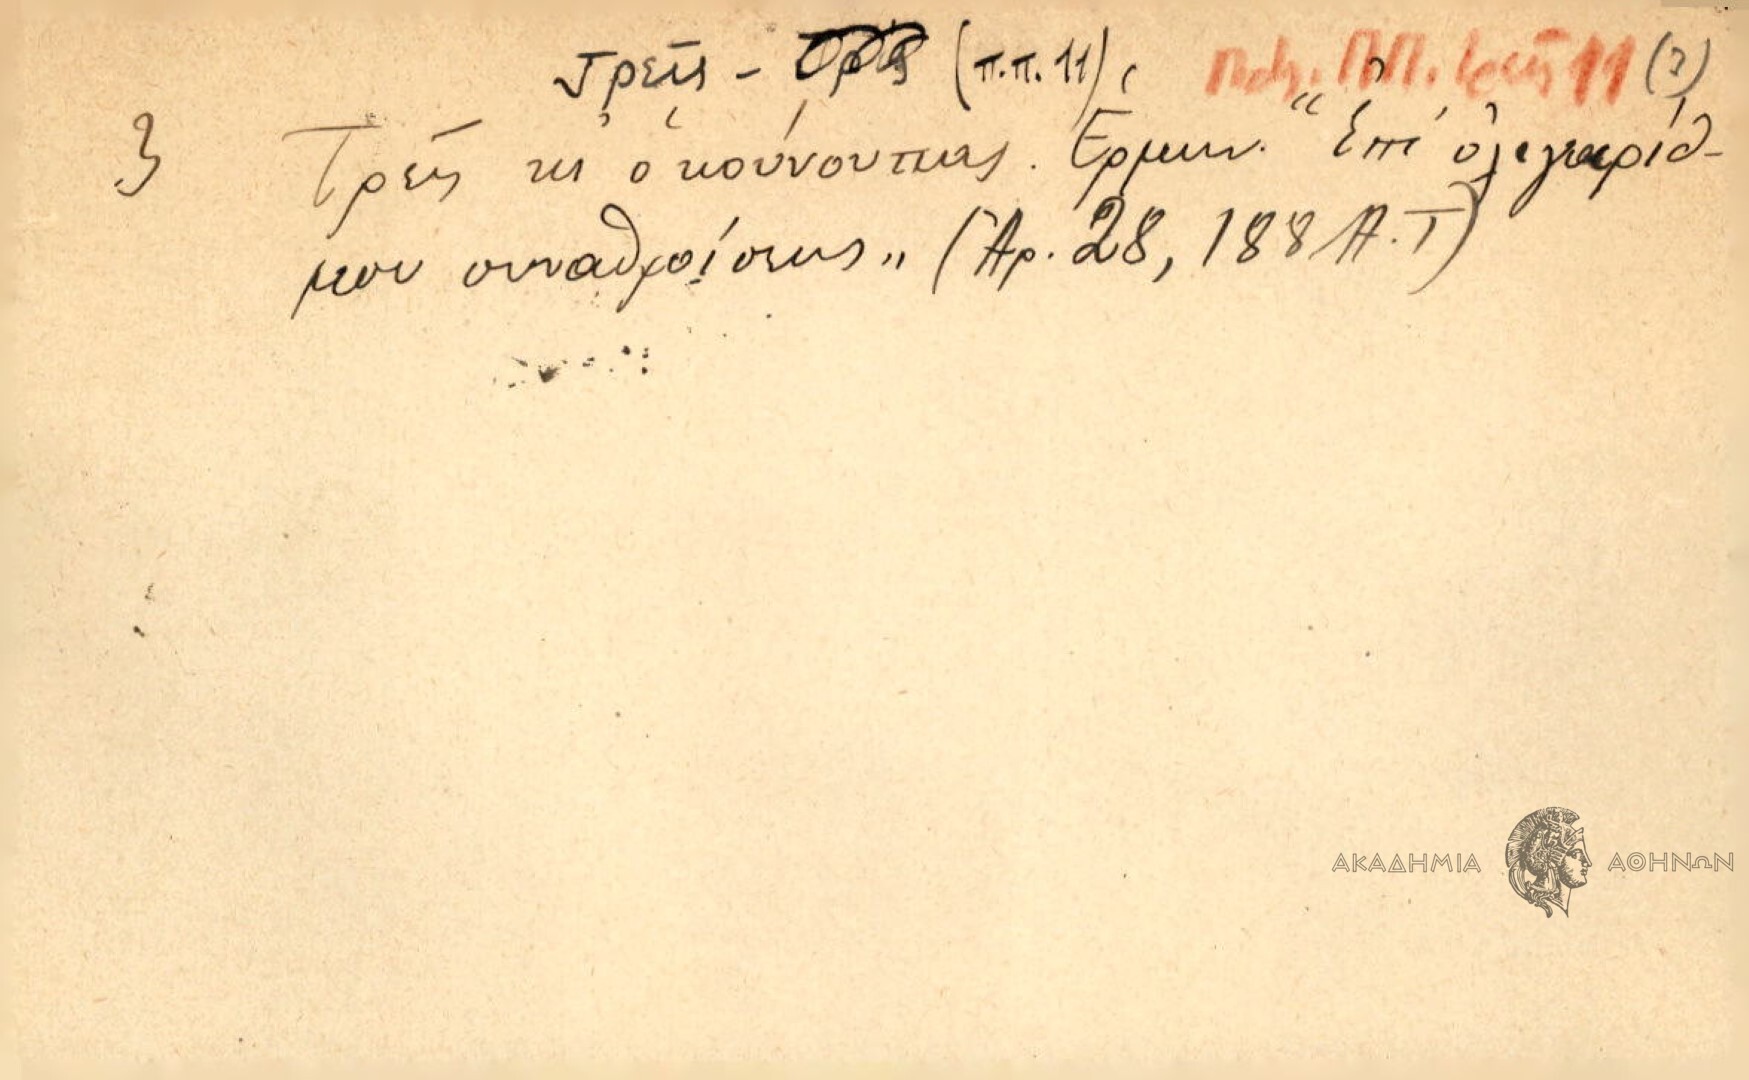 τρεῖς - (π.π. 11) Πολ. Π.Π. τρεῖς 11 (?)
3 Τρεῖς κι ὁ κούνουπας. Ἑρμην. "Ἐπὶ ὀλιγαρίθ-
μου συναθροίσεως„ (Ἀρ. 28, 188 Α.Τ)
ΑΚΑΔΗΜΙΑ ΑΘΗΝΩΝ